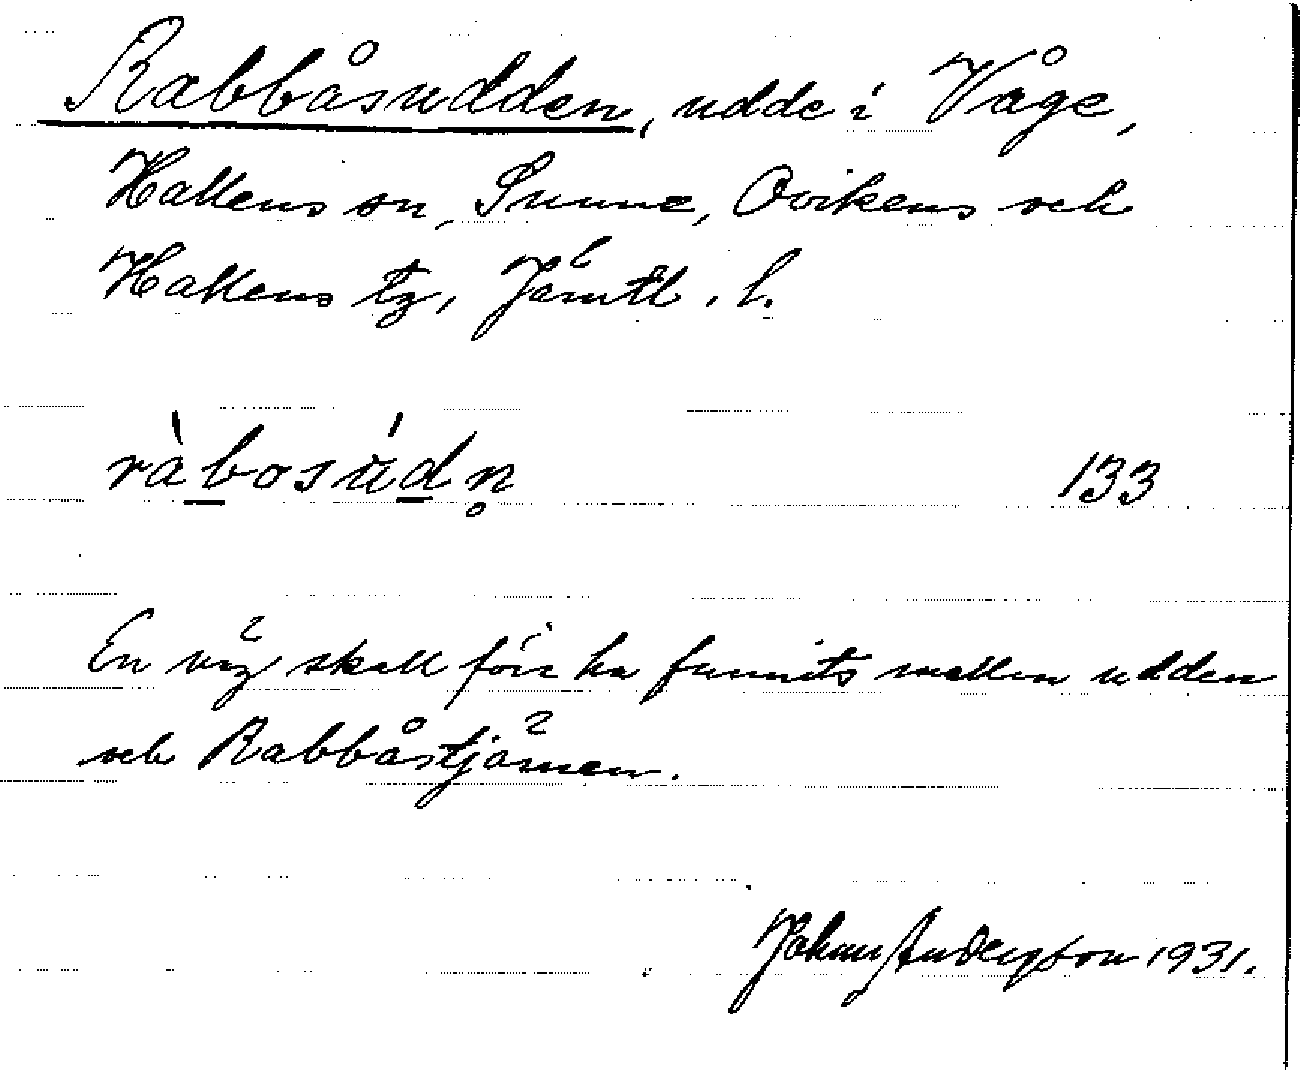 Rabbåsudden, udde i Våge,
Hallens sn, Sunne, Ovikens och
Hallens tg, Jämtl. l.
ràbosúdn̥ 133
En väg skall förr ha funnits mellan udden
och Rabbåstjärnen.
Johan Anderson 1931.